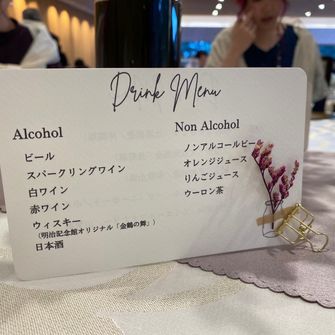 Drink Menu
Alcohol
ビール
スパークリングワイン
白ワイン
赤ワイン
ウィスキー
(明治記念館オリジナル「金鶏の舞」)
日本酒
Non Alcohol
ノンアルコールビール
オレンジジュース
りんごジュース
ウーロン茶